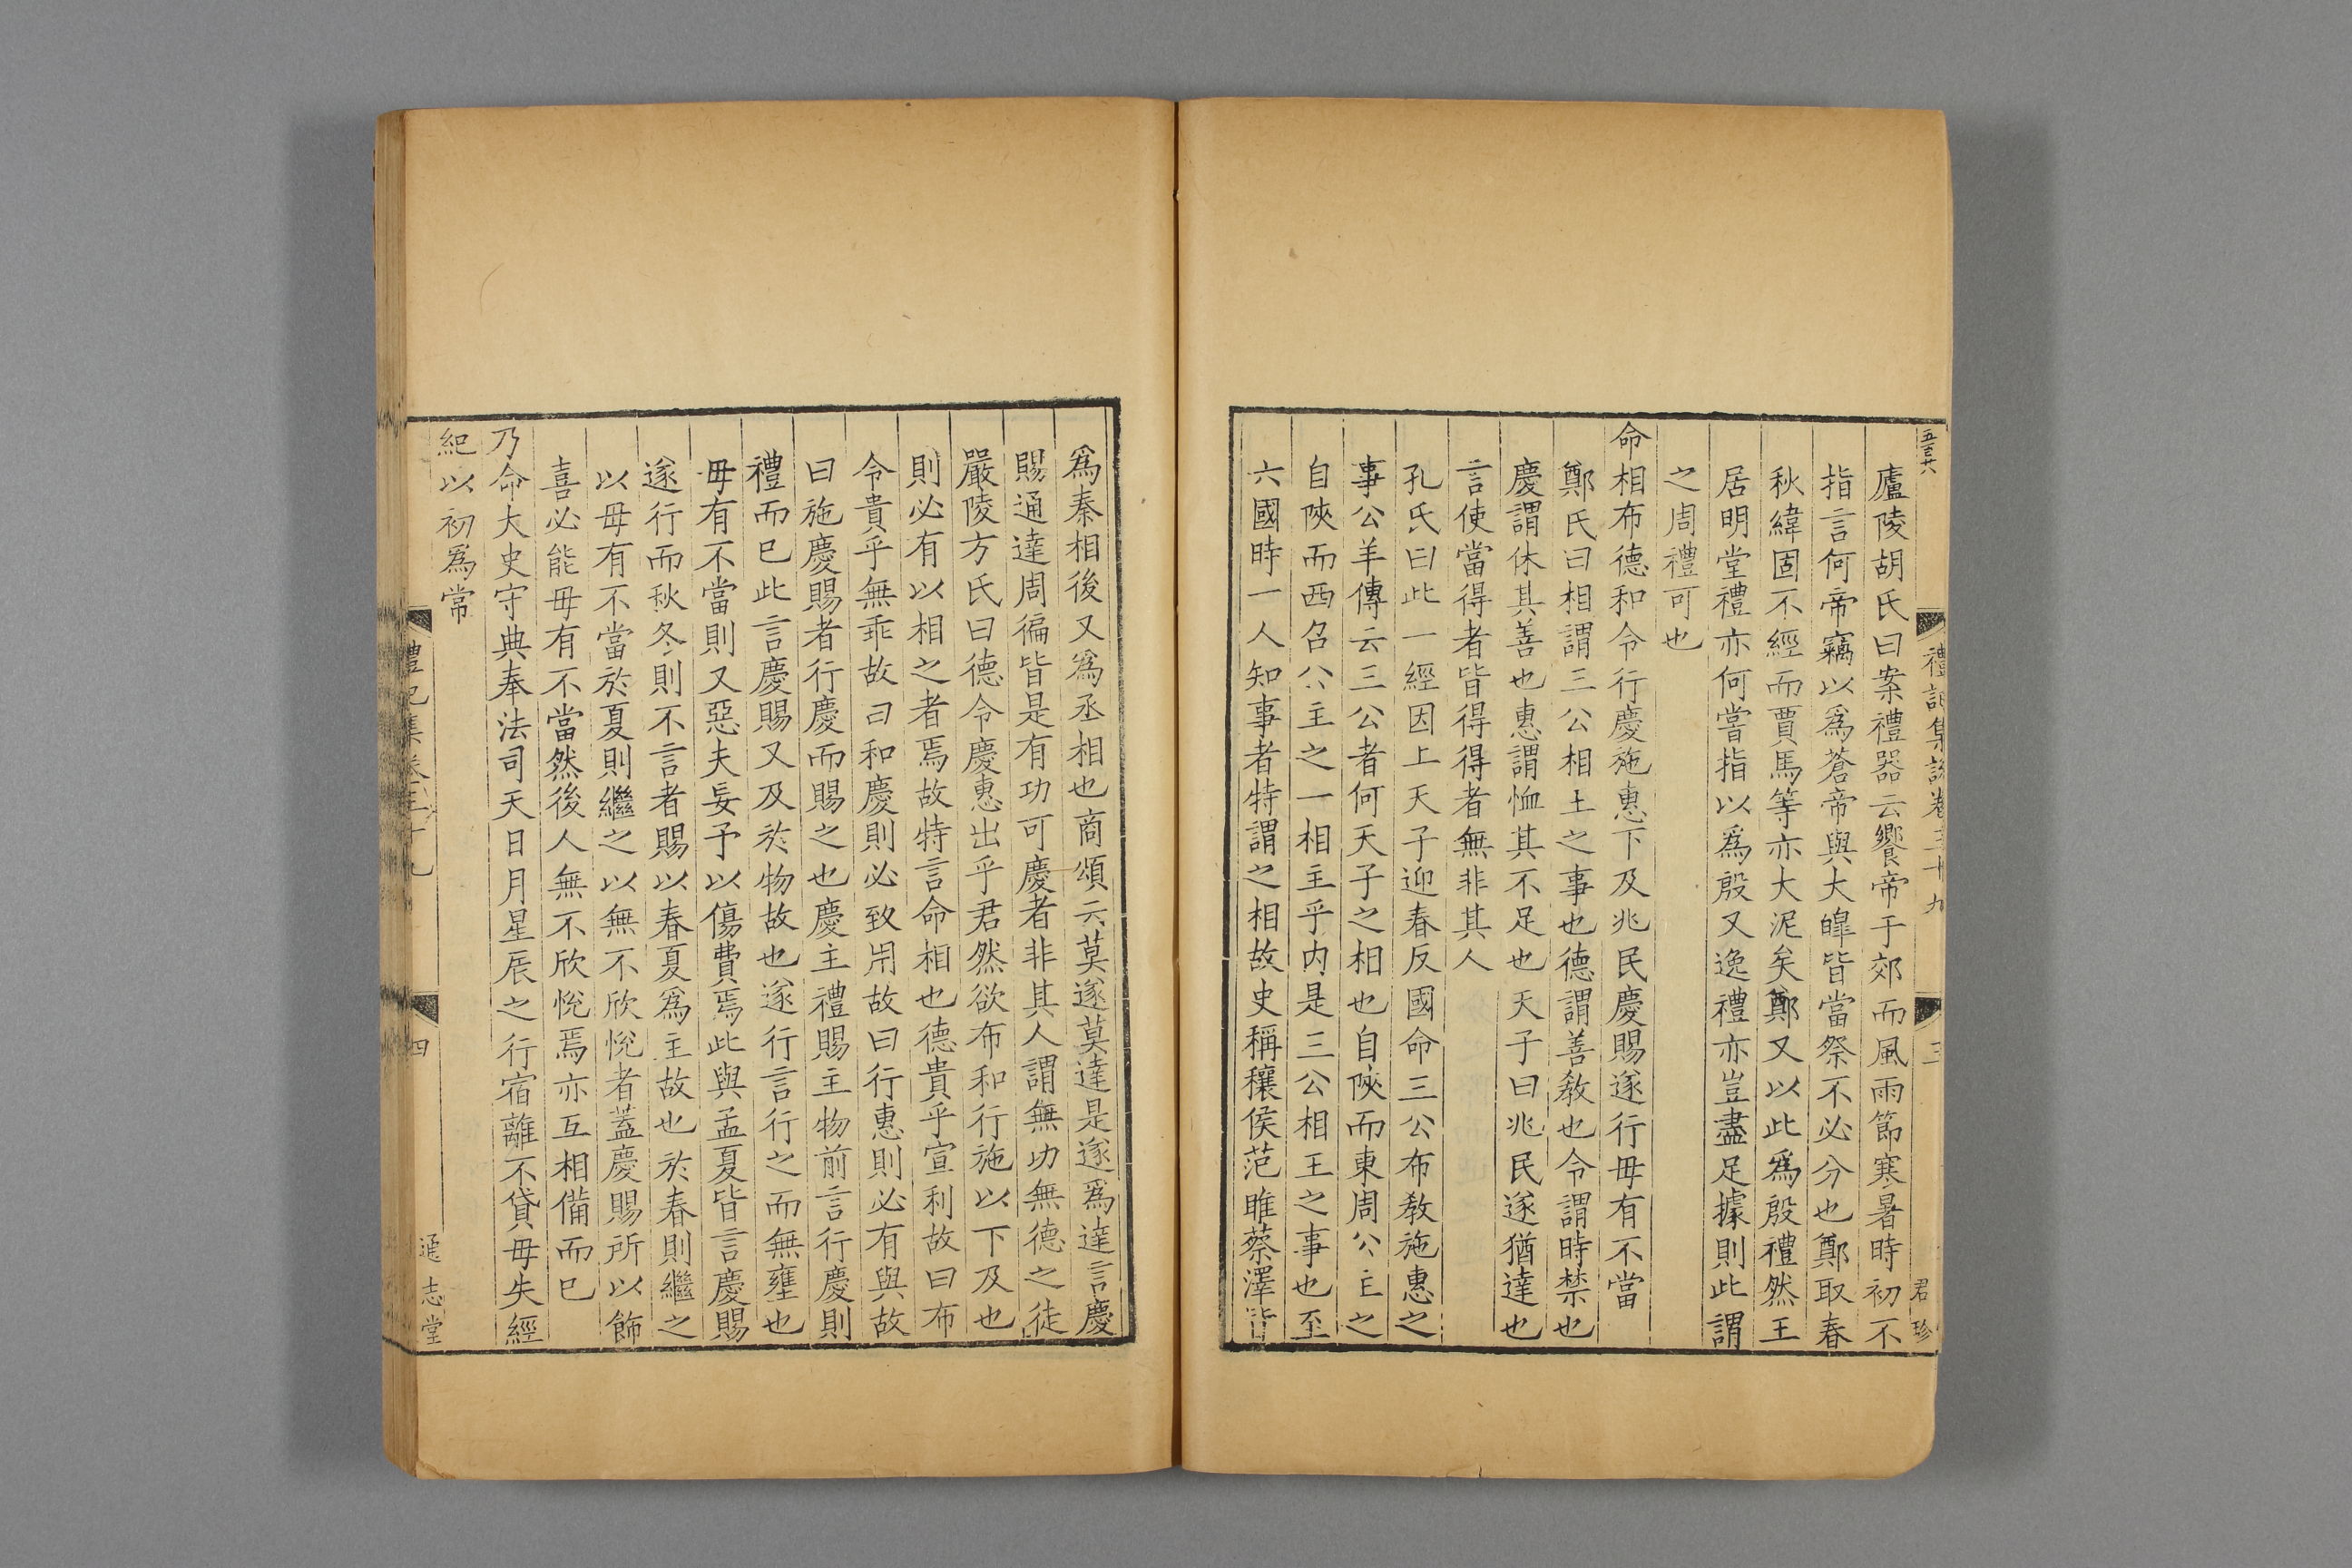 五百六
禮記集說卷三十九
三
君珍
廬陵胡氏曰案禮器云饗帝于郊而風雨節寒暑時初不
指言何帝竊以爲蒼帝與大皥皆當祭不必分也鄭取春
秋緯固不經而賈馬等亦大泥矣鄭又以此爲殷禮然王
居明堂禮亦何嘗指以爲殷又逸禮亦豈盡足據則此謂
之周禮可也
命相布德和令行慶施惠下及兆民慶賜遂行毋有不當
鄭氏曰相謂三公相王之事也德謂善教也令謂時禁也
慶謂休其善也惠謂恤其不足也天子曰兆民遂猶達也
言使當得者皆得得者無非其人
孔氏曰此一經因上天子迎春反國命三公布教施惠之
事公羊傳云三公者何天子之相也自陜而東周公主之
自陜而西召公主之一相主乎内是三公相王之事也至
六國時一人知事者特謂之相故史稱穰侯范雎蔡澤皆
爲秦相後又爲丞相也商頌云莫遂莫達是遂爲達言慶
賜通達周徧皆是有功可慶者非其人謂無功無德之徒
嚴陵方氏曰德令慶惠出乎君然欲布和行施以下及也
則必有以相之者焉故特言命相也德貴乎宣利故曰布
令貴乎無乖故曰和慶則必致用故曰行惠則必有與故
曰施慶賜者行慶而賜之也慶主禮賜主物前言行慶則
禮而已此言慶賜又及於物故也遂行言行之而無壅也
毋有不當則又惡夫妄予以傷費焉此與孟夏皆言慶賜
遂行而秋冬則不言者賜以春夏爲主故也於春則繼之
以毋有不當於夏則繼之以無不欣悅者蓋慶賜所以飾
喜必能毋有不當然後人無不欣悅焉亦互相備而已
乃命大史守典奉法司天日月星辰之行宿離不貸毋失經
紀以初爲常
禮記集卷三十九
四
通志堂